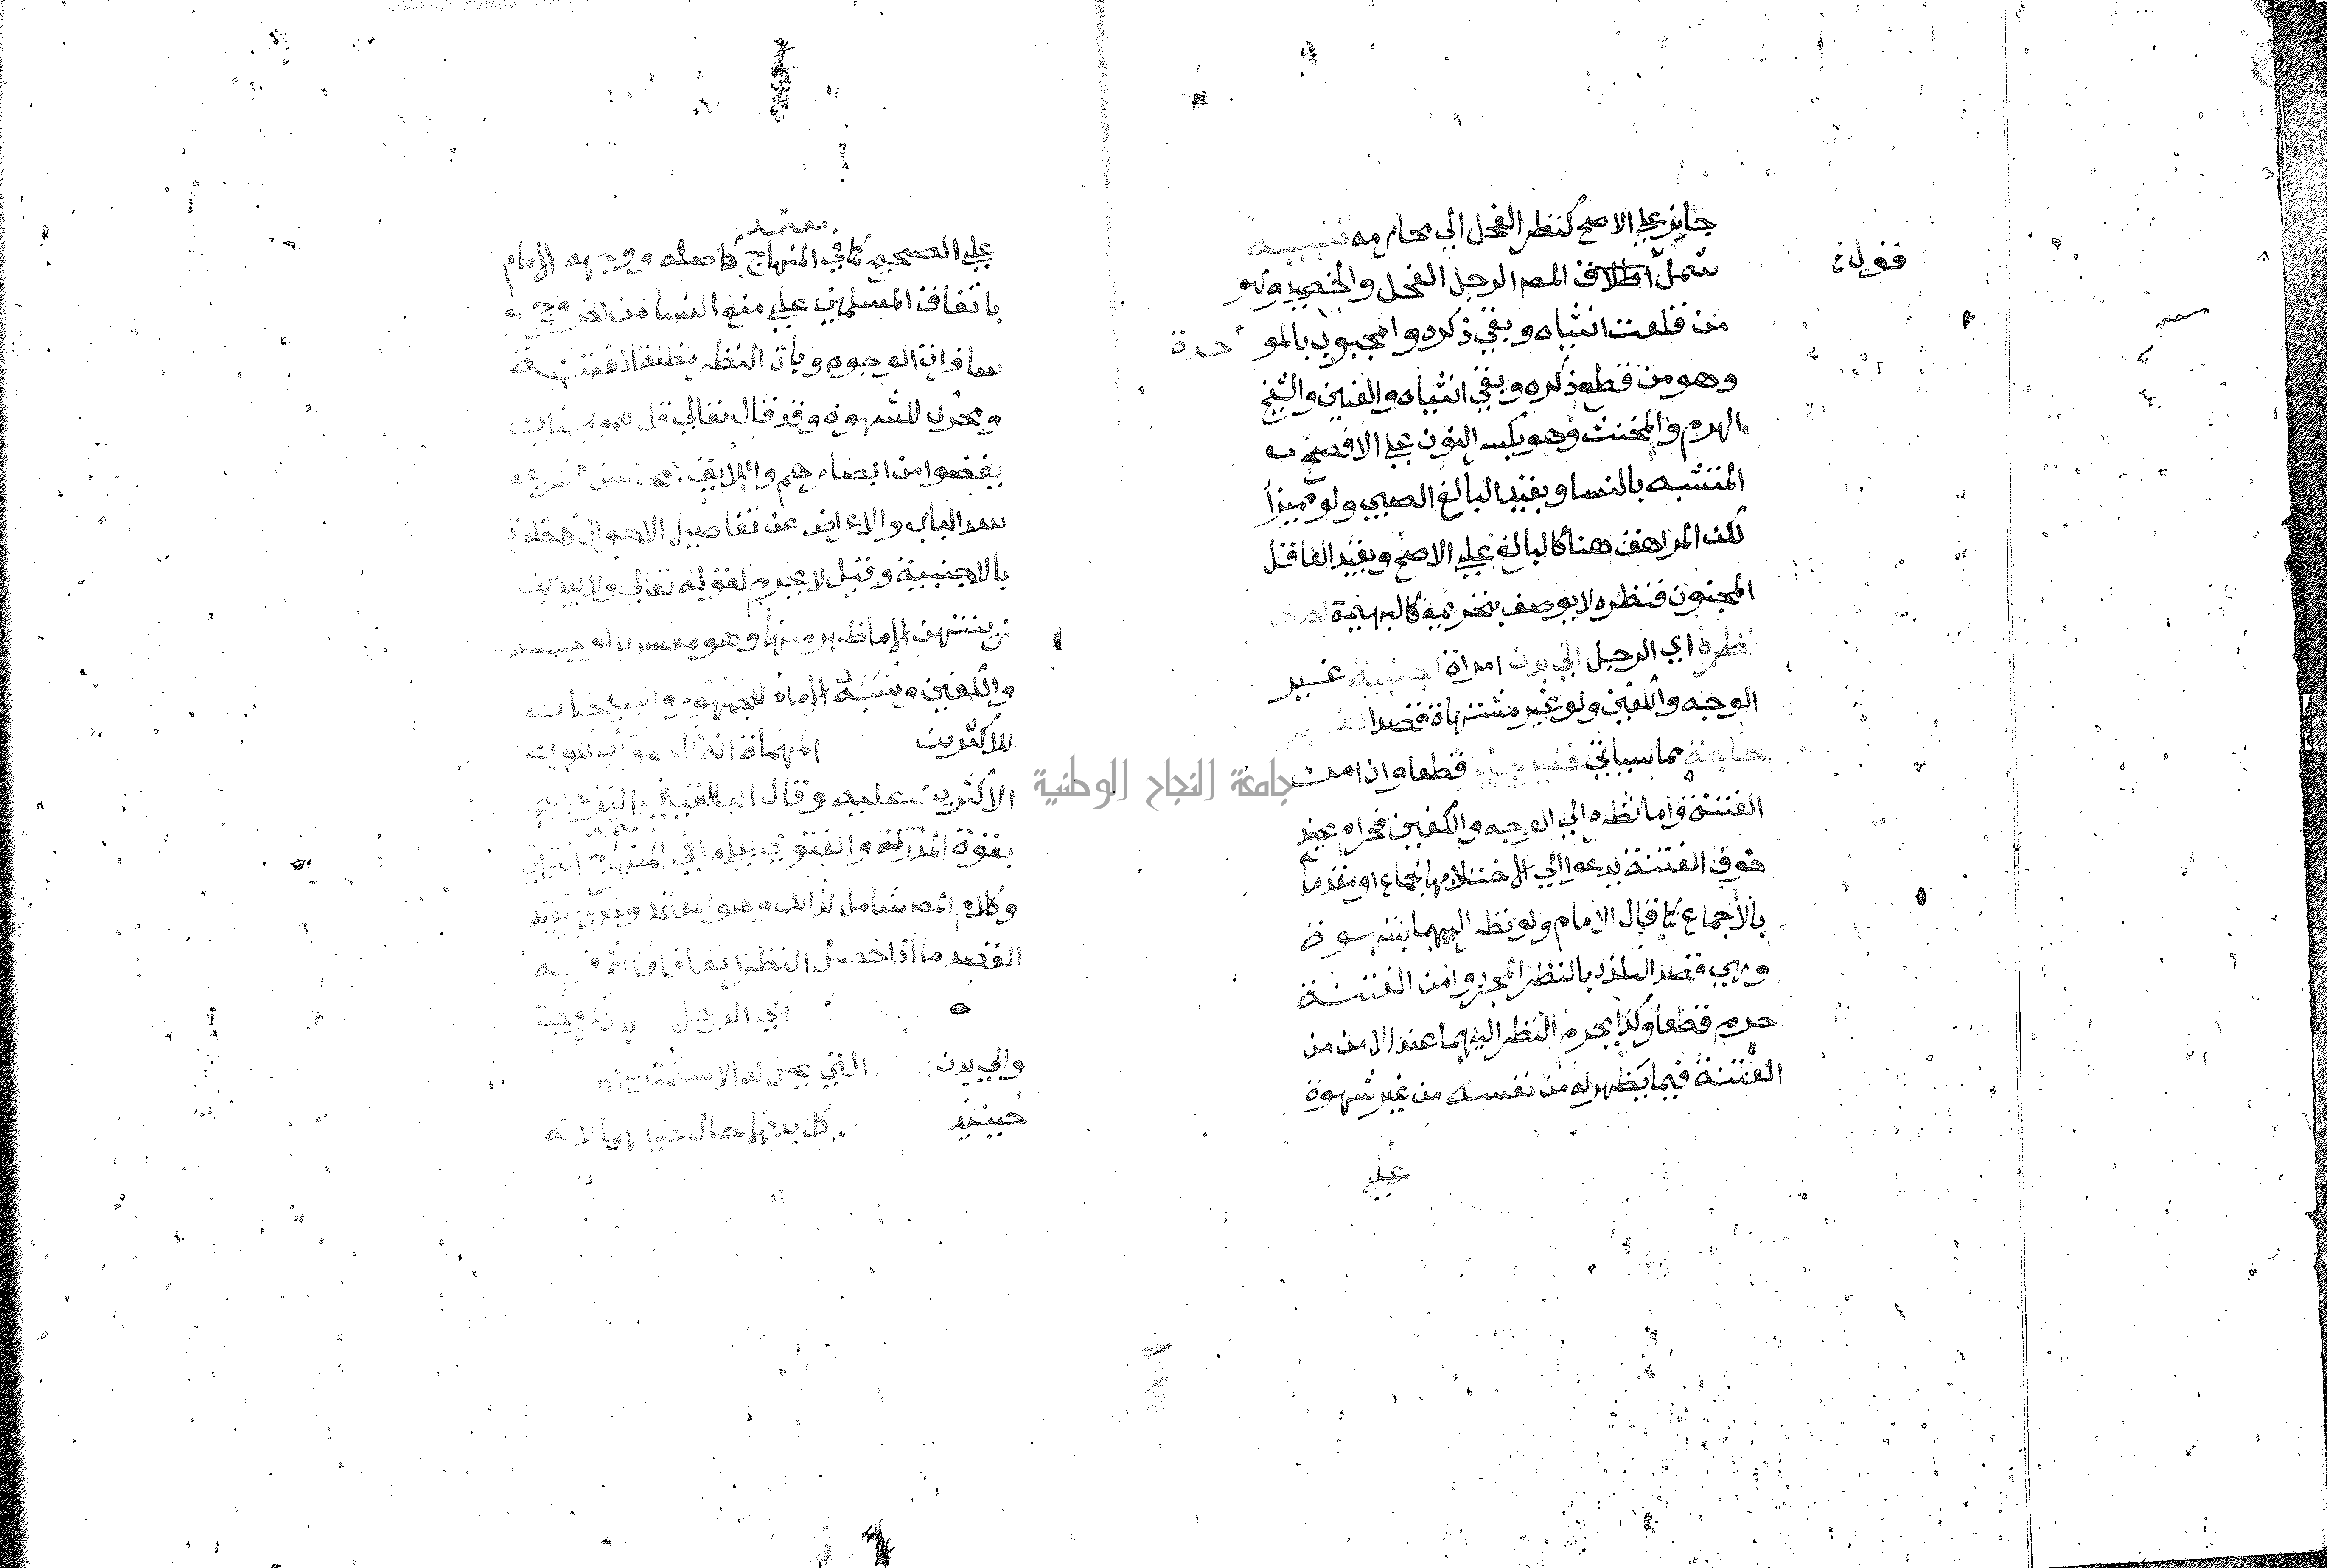 جايز علي الاصح كنظر الفحل الي محارمه تنبيه
شمل اطلاق المصر الرجل الفحل والخصي وهو
فقوله
من قلعت انثياه وبقي ذكره والمجبوب بالموحدة
وهو من قطع ذكره وبقي انثياه والعنين والشيخ
الهرم والمخنث وهو بكسر النون علي الافصح
المتشبه بالنسا وبقيد البالغ الصبي ولو مميزا
لكن المراهق هنا كالبالغ علي الاصح وبقيد العاقل
المجنون فنظره لا يوصف بتحريم كالبهيمة
نظره اي الرجل الي بدن امراة اجنبية غير
الوجه والكفين ولو غير مشتهاة قصدا لغير
حاجة مما سياتي فغير جايز قطعا وان امن
الفتنة واما نظره الي الوجه والكفين فحرام عند
خوف الفتنة تدعوا الي الاختلا بها لجماع او مقدما
بالاجماع كما قال الامام ولو نظر اليهما بشهوة
وهي قصد التلذذ بالنظر المجرد وامن الفتنة
حرم قطعا وكذا يحرم النظر اليهما عند الامن من
الفتنة فيما يظهر له من نفسه من غير شهوة
علي
معتمد
علي الصحيح كما في المنهاج كاصله ووجهه الامام
باتفاق المسلمين علي منع النسا من الخروج
سافرات الوجوه وبان النظر مظنة الفتنة
ومحرك للشهوة وقد قال تعالي قل للمومنين
يغضوا من ابصارهم واللايق بمحاسن الشريعة
سد الباب والاعراض عن تفاصيل الاحوال كالخلوة
بالاجنبية وقيل لا يحرم لقوله تعالي ولا يبدين
زينتهن الا ما ظهر منها وهو مفسر بالوجه
والكفين ونسبه الامام للجمهور والشيخان
للاكثرين المهمات انه الصواب لكون
الاكثرين عليه وقال البلقيني الترجيح
بقوة المدرك والفتوي علي ما في المنهاج انتهي
وكلام المصر شامل لذلك وهو المعتمد وخرج بقيد
القصد ما اذا حصل النظر اتفاقا فلا اثم فيه
اي الرجل بدن زوجته
والي بدن التي يحل له الاستمتاع بها
حينئذ كل بدنها حال حياتها لانه
جامعة النجاح الوطنية